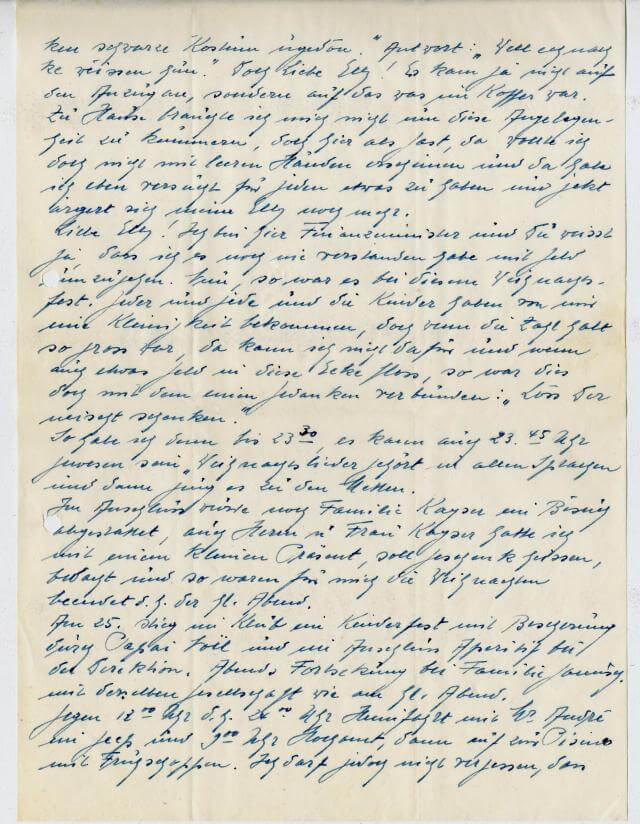 ken schwarze Kostüm ügedon." Antwort: „Vell
ke reissen hun." Doch liebe Elly! Es kam ja nicht auf
den Anzug an, sondern auf das was im Koffer war.
Zu Hause brauchte ich mich nicht um diese Angelegen-
heit zu kümmern, doch hier als Gast, da wollte ich
doch nicht mit leeren Händen erscheinen und da habe
ich eben versucht für jeden etwas zu haben und jetzt
ärgert sich meine Elly noch mehr.
Liebe Elly! Ich bin hier Finanzminister und Du weisst
ja, dass ich es noch nie verstanden habe mit Geld
umzugehen. Nun, so war es bei diesem Weihnachts-
fest. Jeder und jede und die Kinder haben von mir
eine Kleinigkeit bekommen, doch wenn die Zahl halt
so gross war, da kann ich nicht dafür und wenn
auch etwas Geld in diese Ecke floss, so war dies
doch mit dem einen Gedanken verbunden: „Loss Der
neischt schenken."
So habe ich denn bis 23 30, es kann auch 23.45 Uhr
gewesen sein, Weihnachtslieder gehört in allen Sprachen
und dann ging es zu den Metten.
Im Anschluss wurde noch Familie Kayser ein Besuch
abgestattet, auch Herrn u Frau Kayser hatte ich
mit einem kleinen Präsent, soll Geschenk heissen,
bedacht und so waren für mich die Weihnachten
beendet d.h. der hl. Abend.
Am 25. stieg im Klub ein Kinderfest mit Bescherung
durch Papa Noël und im Anschluss Aperitif bei
der Direktion. Abends Fortsetzung bei Familie
mit derselben Gesellschaft wie am hl. Abend.
Gegen 12 00 Uhr d.h. 24 00 Uhr Heimfahrt mit Hr. André
im Jeep und 9 00 Uhr Hochamt, dann auf zur Piscine
mit Frühschoppen. Ich darf jedoch nicht vergessen, dass